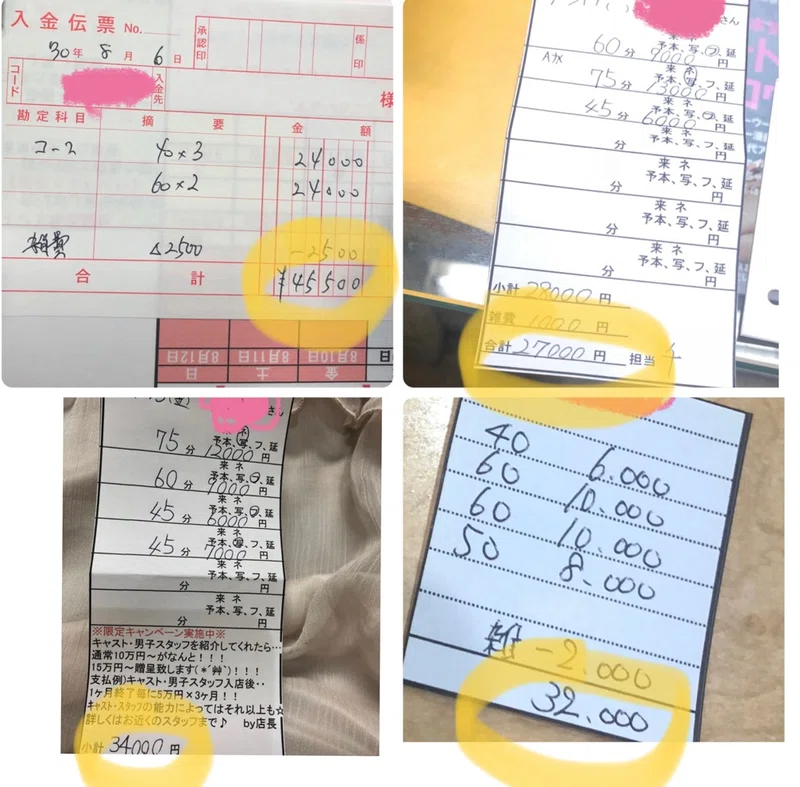 入金伝票 No.
承認印
係印
30年 8月 6日
コード
入金先
様
勘定科目 摘要 金額
コース 40×3 24000
60×2 24000
雑費 △2500 -2500
合計 ¥45500
8月12日 8月11日 8月10日
日 土 金
さん
来 ネ
60分 予本、写、フ、延
9000円
来 ネ
75分 予本、写、フ、延
13000円
来 ネ
45分 予本、写、フ、延
6000円
来 ネ
分 予本、写、フ、延
円
来 ネ
分 予本、写、フ、延
円
来 ネ
分 予本、写、フ、延
円
来 ネ
分 予本、写、フ、延
円
小計 28000円
雑費 1000円
合計 27000円 担当
さん
75分 予本、写、フ、延
12000円
来 ネ
60分 予本、写、フ、延
9000円
来 ネ
45分 予本、写、フ、延
6000円
来 ネ
45分 予本、写、フ、延
7000円
来 ネ
分 予本、写、フ、延
円
来 ネ
分 予本、写、フ、延
円
※限定キャンペーン実施中※
キャスト・男子スタッフを紹介してくれたら…
通常10万円~がなんと!!!
15万円~贈呈致します(*´艸`)!!!
支払例)キャスト・男子スタッフ入店後‥
1ヶ月終了毎に5万円×3ヶ月!!
キャスト・スタッフの能力によってはそれ以上も☆
詳しくはお近くのスタッフまで♪ by店長
小計 34000円
40 6.000
60 10.000
60 10.000
50 8.000
雑 -2.000
32.000